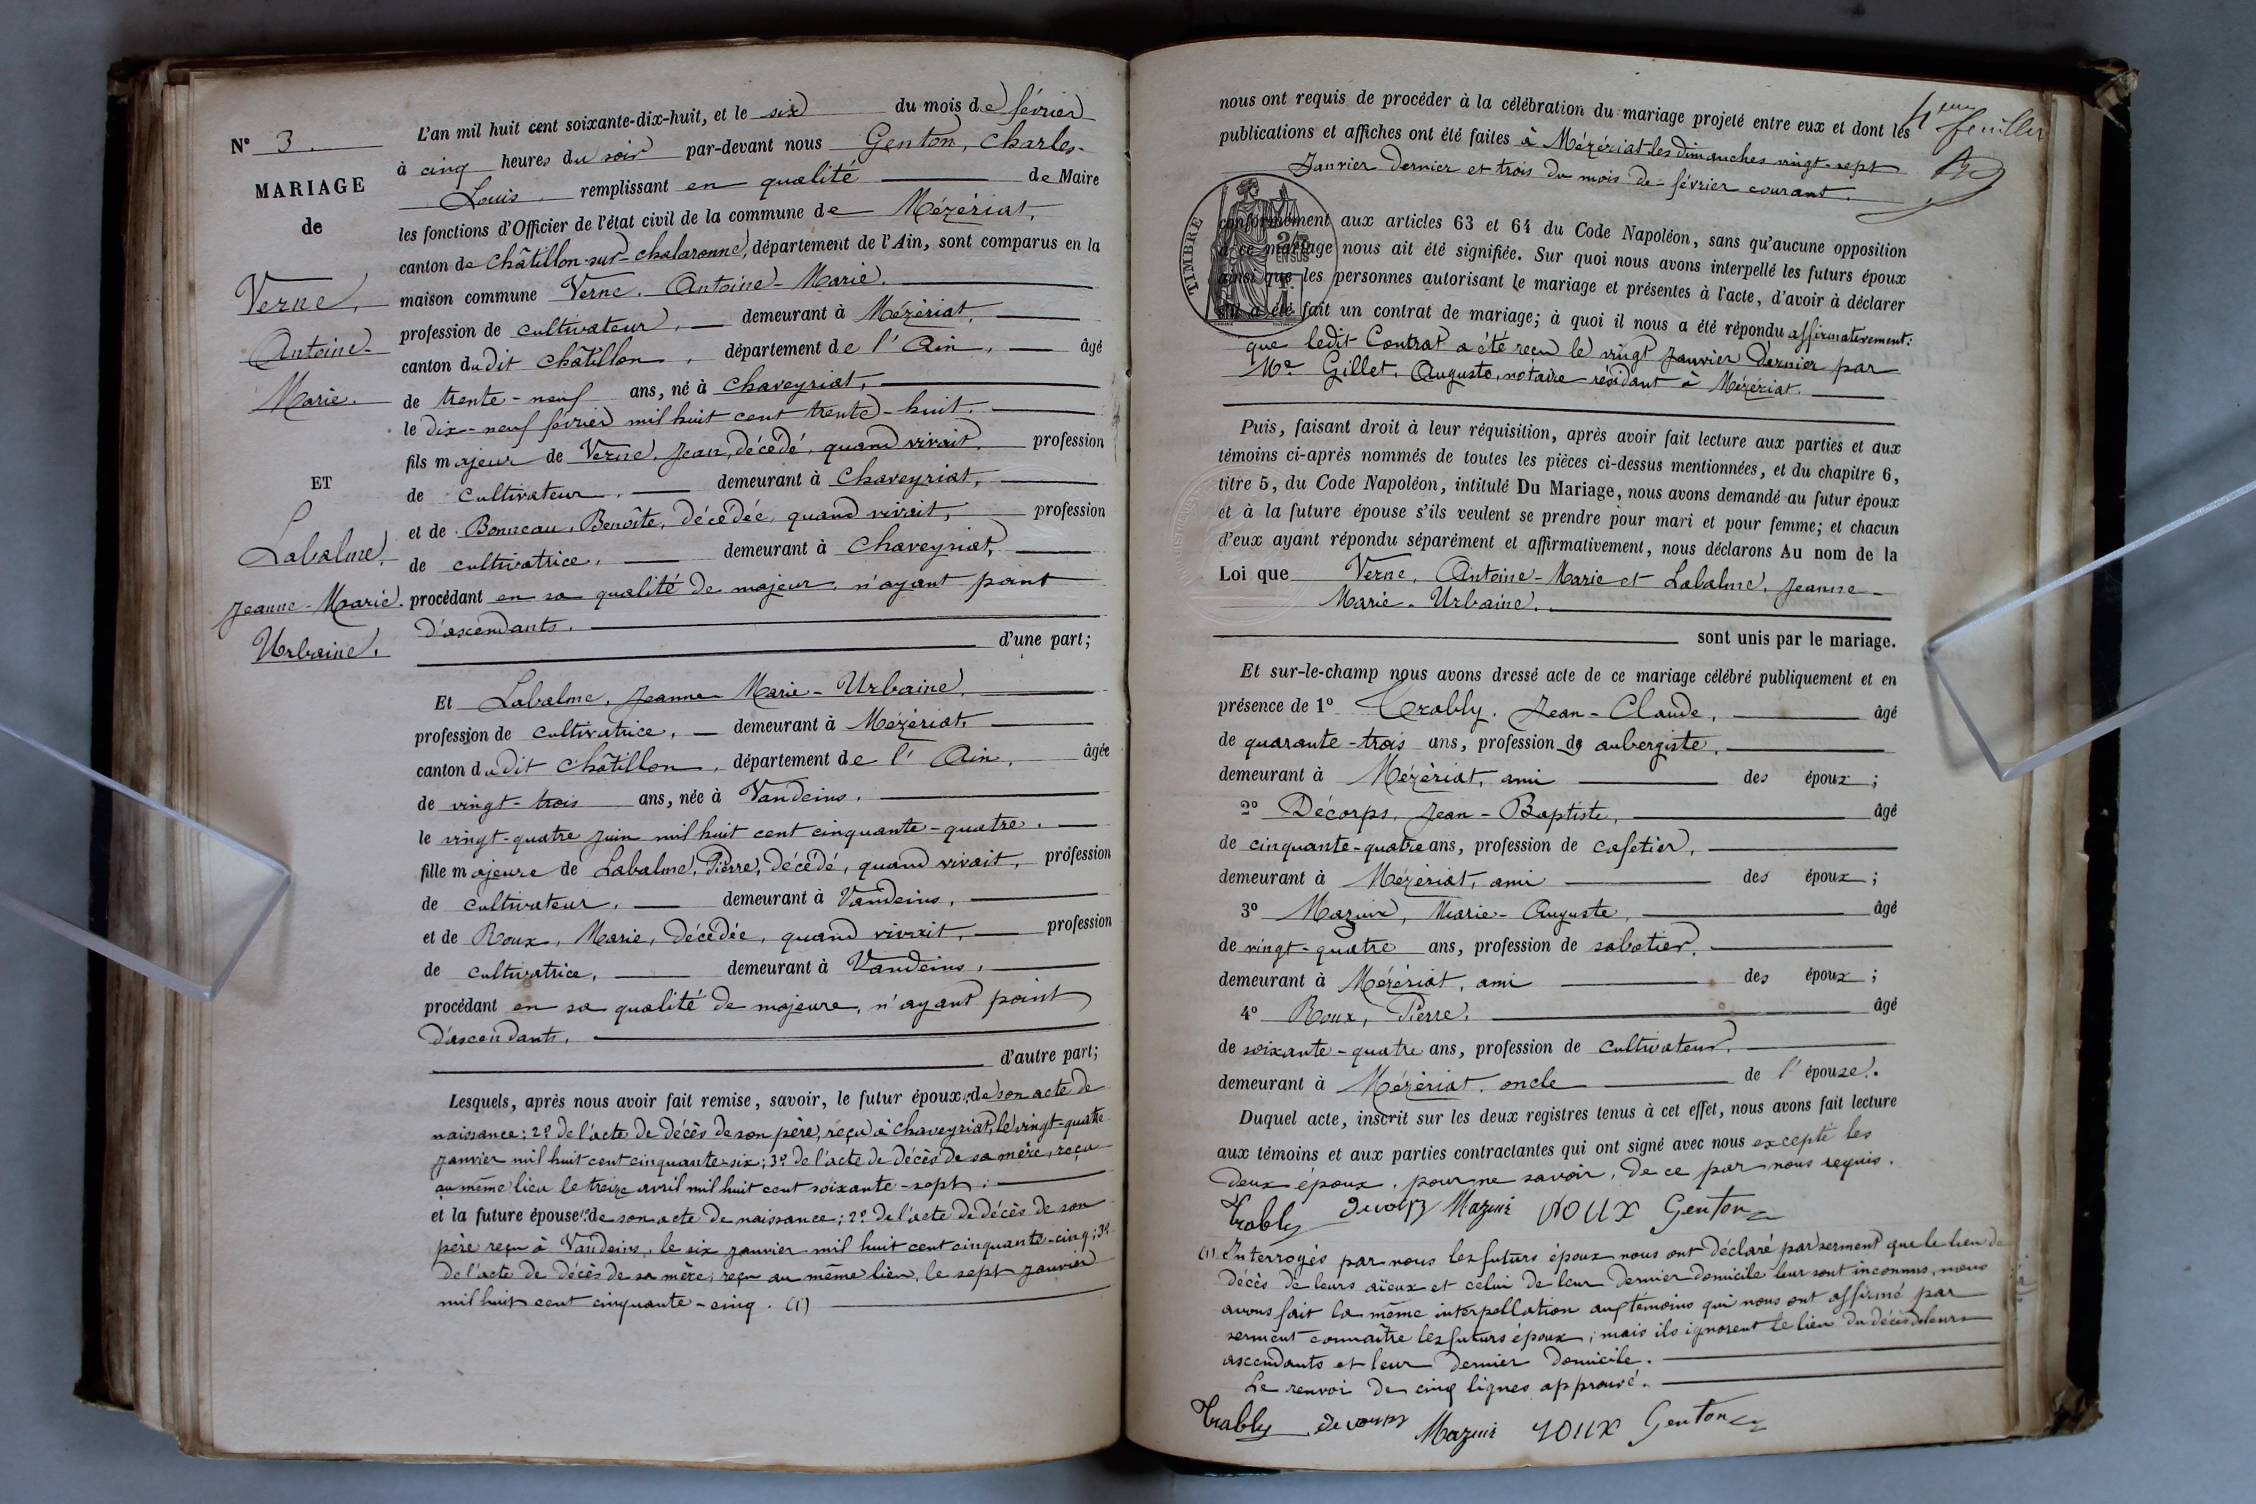 N° 3.
MARIAGE
de
Verne,
Antoine-
Marie.
ET
Labalme,
Jeanne-Marie.
Urbaine.
L'an mil huit cent soixante-dix-huit, et le six du mois de février
à cinq heures du soir par-devant nous Genton, Charles-
Louis. remplissant en qualité de Maire
les fonctions d'Officier de l'état civil de la commune de Mézériat,
canton de Châtillon-sur-Chalaronne, département de l'Ain, sont comparus en la
maison commune Verne, Antoine-Marie.
profession de cultivateur, demeurant à Mézériat,
canton dudit Châtillon, département de l'Ain, âgé
de trente-neuf ans, né à Chaveyriat,
le dix-neuf février mil huit cent trente-huit.
fils majeur de Verne, Jean, décédé, quand vivait, profession
de cultivateur, demeurant à Chaveyriat,
et de Bonneau, Benoîte, décédée, quand vivait, profession
de cultivatrice, demeurant à Chaveyriat,
procédant en sa qualité de majeur, n'ayant point
d'ascendants.
d'une part;
Et Labalme, Jeanne Marie-Urbaine,
profession de cultivatrice, demeurant à Mézériat,
canton dudit Châtillon, département de l'Ain, âgée
de vingt-trois ans, née à Vandeins,
le vingt-quatre juin mil huit cent cinquante-quatre.
fille majeure de Labalme, Pierre, décédé, quand vivait, profession
de cultivateur, demeurant à Vandeins,
et de Roux, Marie, décédée, quand vivait, profession
de cultivatrice, demeurant à Vandeins,
procédant en sa qualité de majeure, n'ayant point
d'ascendants.
d'autre part;
Lesquels, après nous avoir fait remise, savoir, le futur époux, de son acte de
naissance; 2° de l'acte de décès de son père, reçu à Chaveyriat, le vingt-quatre
janvier mil huit cent cinquante-six; 3° de l'acte de décès de sa mère, reçu
au même lieu le treize avril mil huit cent soixante-sept;
et la future épouse 1° de son acte de naissance; 2° de l'acte de décès de son
père reçu à Vandeins, le six janvier mil huit cent cinquante-cinq; 3°
de l'acte de décès de sa mère, reçu au même lieu, le sept janvier
mil huit cent cinquante-cinq. (1)
4eme feuillet
nous ont requis de procéder à la célébration du mariage projeté entre eux et dont les
publications et affiches ont été faites à Mézériat les dimanches vingt-sept
Janvier dernier et trois du mois de février courant.
TIMBRE
2/10 EN SUS
conformément aux articles 63 et 64 du Code Napoléon, sans qu'aucune opposition
à ce mariage nous ait été signifiée. Sur quoi nous avons interpellé les futurs époux
ainsi que les personnes autorisant le mariage et présentes à l'acte, d'avoir à déclarer
s'il a été fait un contrat de mariage; à quoi il nous a été répondu affirmativement:
que ledit Contrat a été reçu le vingt Janvier dernier par
Me Gillet, Auguste, notaire résidant à Mézériat.
Puis, faisant droit à leur réquisition, après avoir fait lecture aux parties et aux
témoins ci-après nommés de toutes les pièces ci-dessus mentionnées, et du chapitre 6,
titre 5, du Code Napoléon, intitulé Du Mariage, nous avons demandé au futur époux
et à la future épouse s'ils veulent se prendre pour mari et pour femme; et chacun
d'eux ayant répondu séparément et affirmativement, nous déclarons Au nom de la
Loi que Verne, Antoine-Marie et Labalme, Jeanne-
Marie-Urbaine,
sont unis par le mariage.
Et sur-le-champ nous avons dressé acte de ce mariage célébré publiquement et en
présence de 1° Trably, Jean-Claude, âgé
de quarante-trois ans, profession de aubergiste,
demeurant à Mézériat, ami des époux;
2° Décorps, Jean-Baptiste, âgé
de cinquante-quatre ans, profession de cafetier,
demeurant à Mézériat, ami des époux;
3° Mazuir, Marie-Auguste, âgé
de vingt-quatre ans, profession de sabotier,
demeurant à Mézériat, ami des époux;
4° Roux, Pierre, âgé
de soixante-quatre ans, profession de cultivateur,
demeurant à Mézériat, oncle de l'épouse.
Duquel acte, inscrit sur les deux registres tenus à cet effet, nous avons fait lecture
aux témoins et aux parties contractantes qui ont signé avec nous excepté les
deux époux, pour ne savoir, de ce par nous requis.
Trably Decorps Mazuir roux Genton
(1) Interrogés par nous les futurs époux nous ont déclaré par serment que le lieu de
décès de leurs aïeux et celui de leur dernier domicile leur sont inconnus, nous
avons fait la même interpellation aux témoins qui nous ont affirmé par
serment connaître les futurs époux; mais ils ignorent le lieu du décès de leurs
ascendants et leur dernier domicile.
Le renvoi de cinq lignes approuvé.
Trably Decorps Mazuir roux Genton